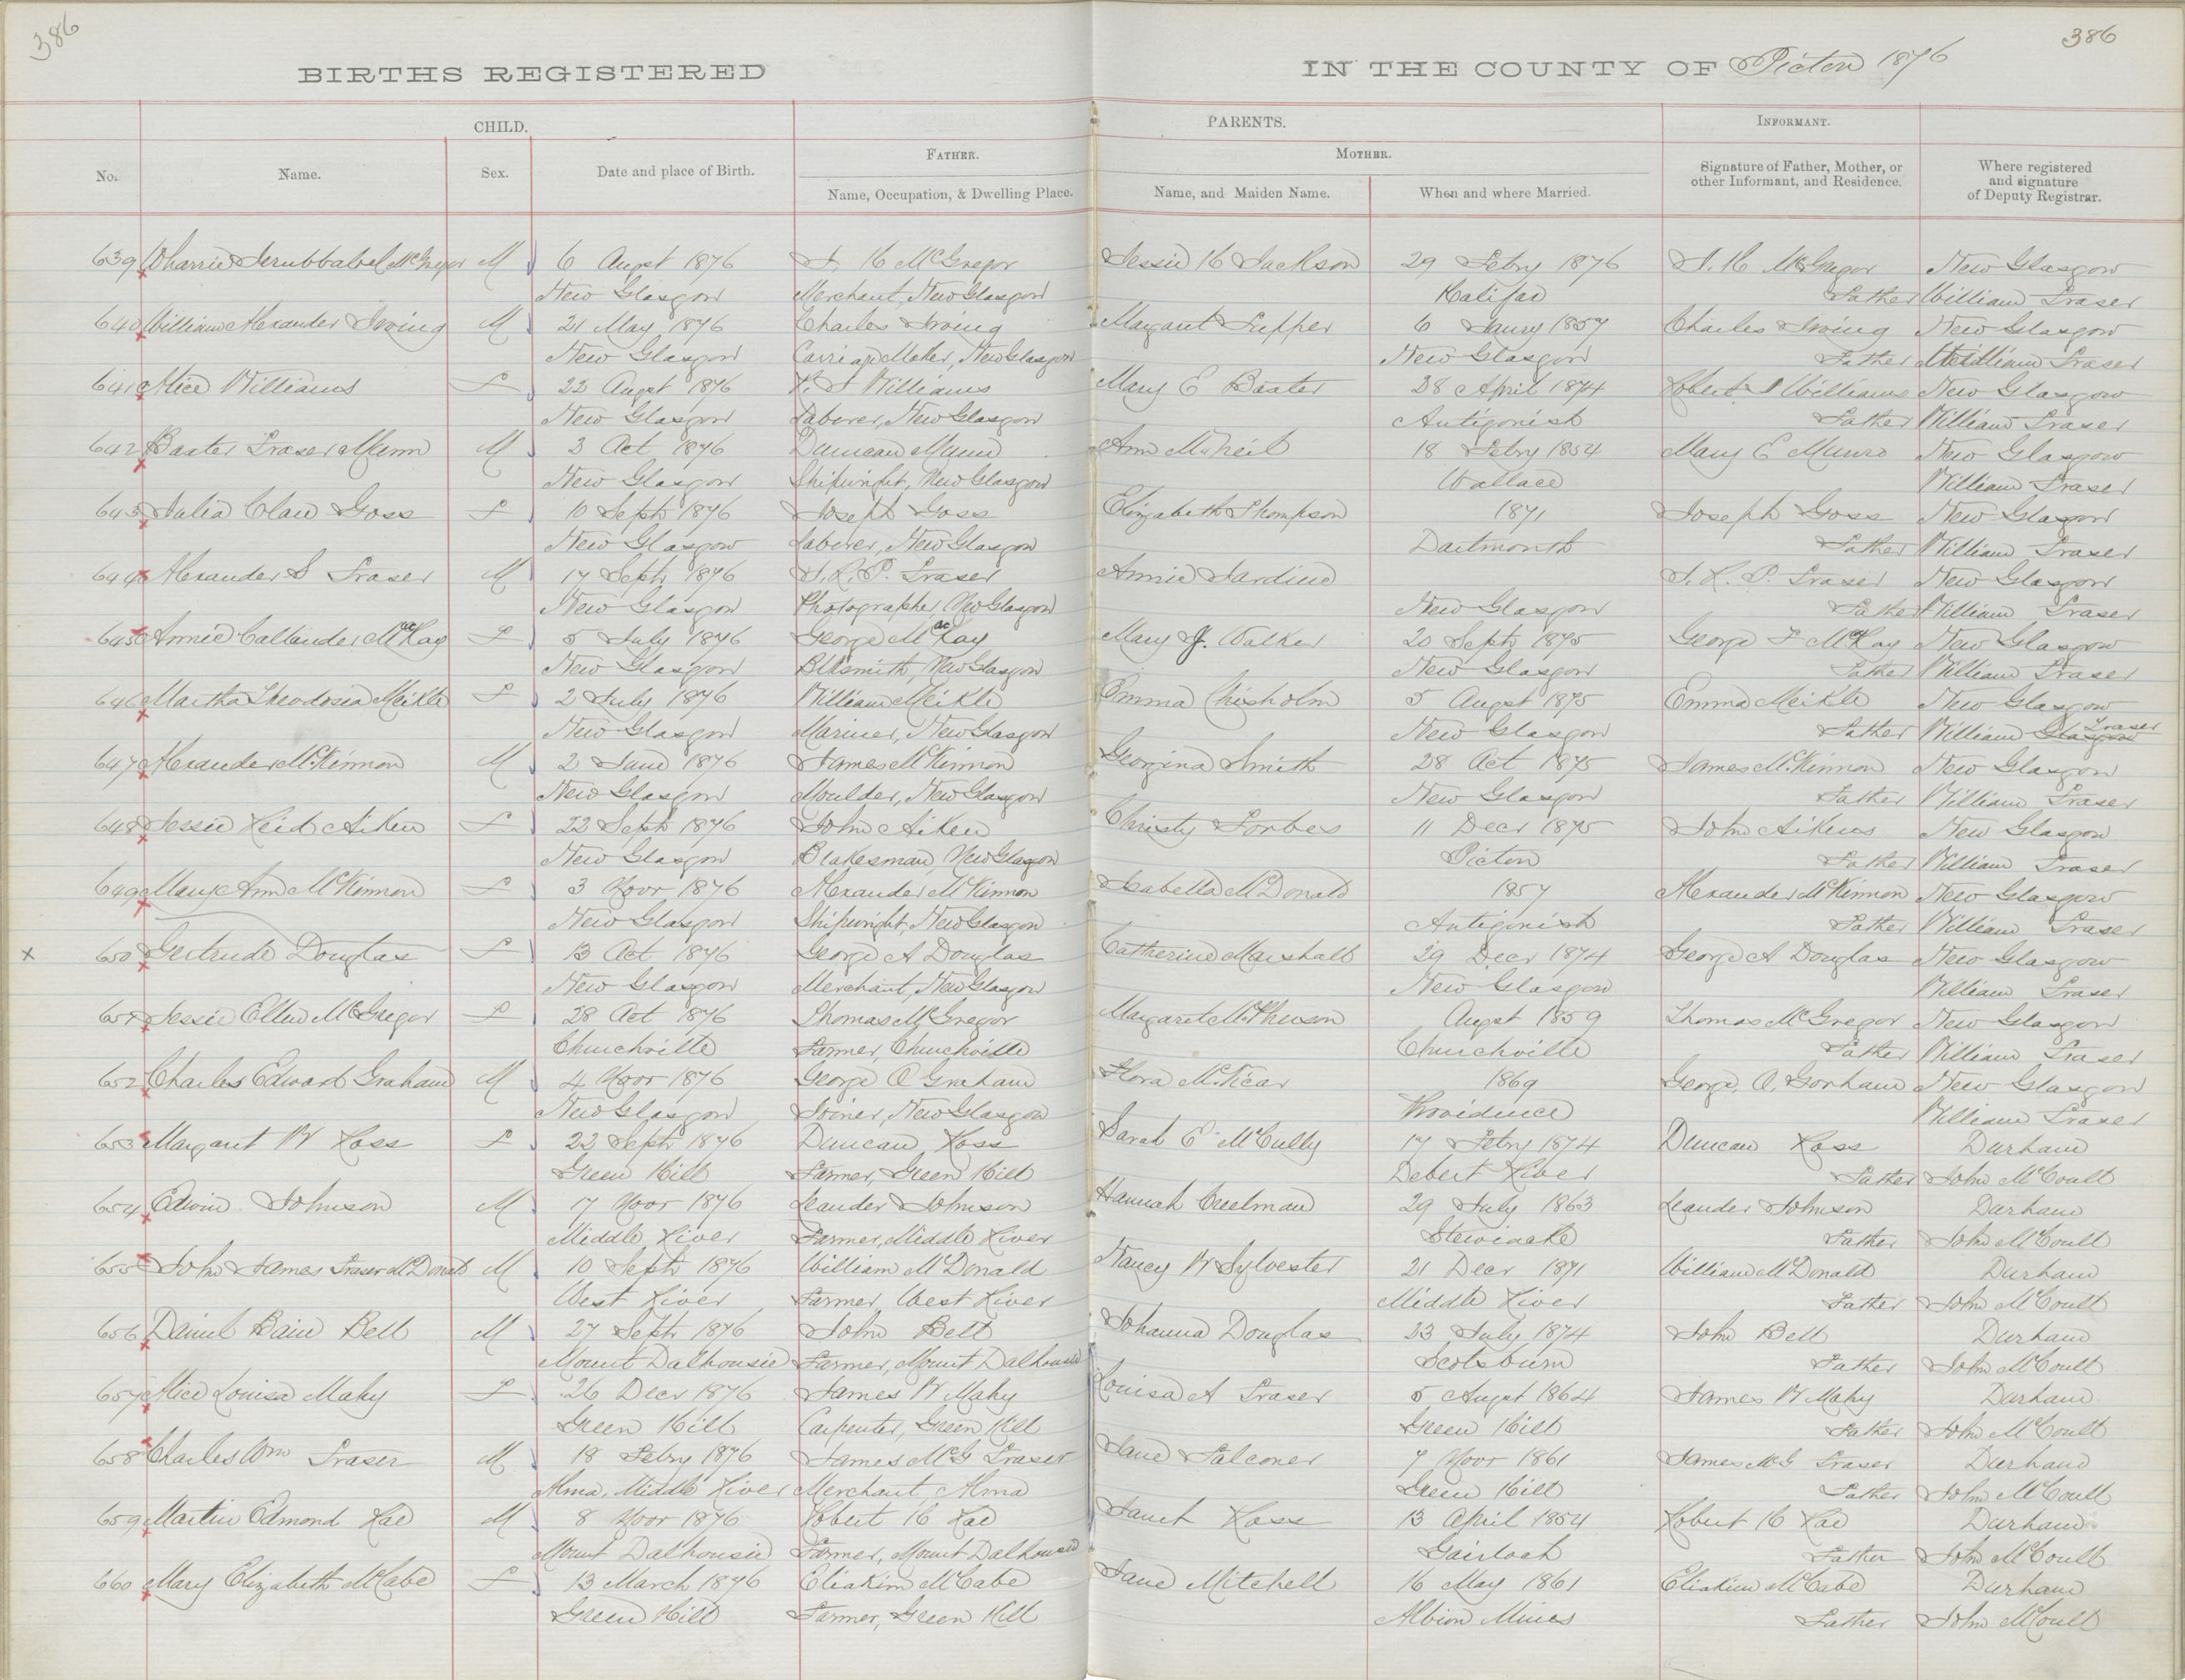 386
386
BIRTHS REGISTERED IN THE COUNTY OF Pictou 1876
CHILD. PARENTS. INFORMANT.
No. Name. Sex. Date and place of Birth. FATHER. Name, Occupation, & Dwelling Place. MOTHER. Name, and Maiden Name. When and where Married. Signature of Father, Mother, or other Informant, and Residence. Where registered and signature of Deputy Registrar.
639 McGregor M 6 Augst 1876 J. H McGregor Jessie H Jackson 29 Febry 1876 J. H McGregor New Glasgow
New Glasgow Merchant, New Glasgow Halifax Father William Fraser
640 William Alexander Irving M 21 May 1876 Charles Irving Margaret Tupper 6 Jany 1857 Charles Irving New Glasgow
New Glasgow Carriage Maker, New Glasgow New Glasgow Father William Fraser
641 Alice Williams F 22 Augst 1876 R. J Williams Mary E Baxter 28 April 1874 Robert J Williams New Glasgow
New Glasgow Laborer, New Glasgow Antigonish Father William Fraser
642 Baxter Fraser Munn M 3 Oct 1876 Duncan Munn Ann McNeil 18 Febry 1854 Mary E Munro New Glasgow
New Glasgow Shipwright, New Glasgow Wallace William Fraser
643 Julia Clara Goss F 10 Septr 1876 Joseph Goss Elizabeth Thompson 1871 Joseph Goss New Glasgow
New Glasgow Laborer, New Glasgow Dartmouth Father William Fraser
644 Alexander S Fraser M 17 Septr 1876 J. R. P. Fraser Annie Jardine J. R. P. Fraser New Glasgow
New Glasgow Photographer New Glasgow New Glasgow Father William Fraser
645 Annie Callander MacKay F 5 July 1876 George MacKay Mary J. Walker 20 Septr 1875 George F McKay New Glasgow
New Glasgow Blksmith, New Glasgow New Glasgow Father William Fraser
646 Martha Theodosia Meikle F 2 July 1876 William Meikle Emma Chisholm 5 Augst 1875 Emma Meikle New Glasgow
New Glasgow Mariner, New Glasgow New Glasgow Father William Glasgow Fraser
647 Alexander McKinnon M 2 June 1876 James McKinnon Georgina Smith 28 Oct 1875 James McKinnon New Glasgow
New Glasgow Moulder, New Glasgow New Glasgow Father William Fraser
648 Jessie Reid Aiken F 22 Septr 1876 John Aiken Christy Forbes 11 Decr 1875 John Aikens New Glasgow
New Glasgow Brakesman, New Glasgow Pictou Father William Fraser
649 Mary Ann McKinnon F 3 Novr 1876 Alexander McKinnon Isabella McDonald 1857 Alexander McKinnon New Glasgow
New Glasgow Shipwright, New Glasgow Antigonish Father William Fraser
x 650 Gertrude Douglas F 13 Oct 1876 George A Douglas Catherine Marshall 29 Decr 1874 George A Douglas New Glasgow
New Glasgow Merchant, New Glasgow New Glasgow William Fraser
651 Jessie Ellen McGregor F 28 Oct 1876 Thomas McGregor Margaret McPherson Augst 1859 Thomas McGregor New Glasgow
Churchville Farmer, Churchville Churchville Father William Fraser
652 Charles Edward Graham M 4 Novr 1876 George O Graham Flora McVicar 1869 George O. Gorham New Glasgow
New Glasgow Joiner, New Glasgow Providence William Fraser
653 Margaret W Ross F 22 Septr 1876 Duncan Ross Sarah E McCully 17 Febry 1874 Duncan Ross Durham
Green Hill Farmer, Green Hill Debert River Father John McCoull
654 Edwin Johnson M 7 Novr 1876 Leander Johnson Hannah Creelman 29 July 1863 Leander Johnson Durham
Middle River Farmer, Middle River Stewiacke Father John McCoull
655 John James Fraser McDonald M 10 Septr 1876 William McDonald Nancy W Sylvester 21 Decr 1871 William McDonald Durham
West River Farmer, West River Middle River Father John McCoull
656 Daniel Bain Bell M 27 Septr 1876 John Bell Johanna Douglas 23 July 1874 John Bell Durham
Mount Dalhousie Farmer, Mount Dalhousie Scotsburn Father John McCoull
657 Alice Louisa Mahy F 26 Decr 1876 James W Mahy Louisa A Fraser 5 Augst 1864 James W Mahy Durham
Green Hill Carpenter, Green Hill Green Hill Father John McCoull
658 Charles Wm Fraser M 18 Febry 1876 James McG Fraser Jane Falconer 7 Novr 1861 James McG Fraser Durham
Alma, Middle River Merchant Alma Green Hill Father John McCoull
659 Martin Edmond Rae M 8 Novr 1876 Robert H Rae Janet Ross 13 April 1854 Robert H Rae Durham
Mount Dalhousie Farmer, Mount Dalhousie Gairloch Father John McCoull
660 Mary Elizabeth McCabe F 13 March 1876 Eliakim McCabe Jane Mitchell 16 May 1861 Eliakim McCabe Durham
Green Hill Farmer, Green Hill Albion Mines Father John McCoull